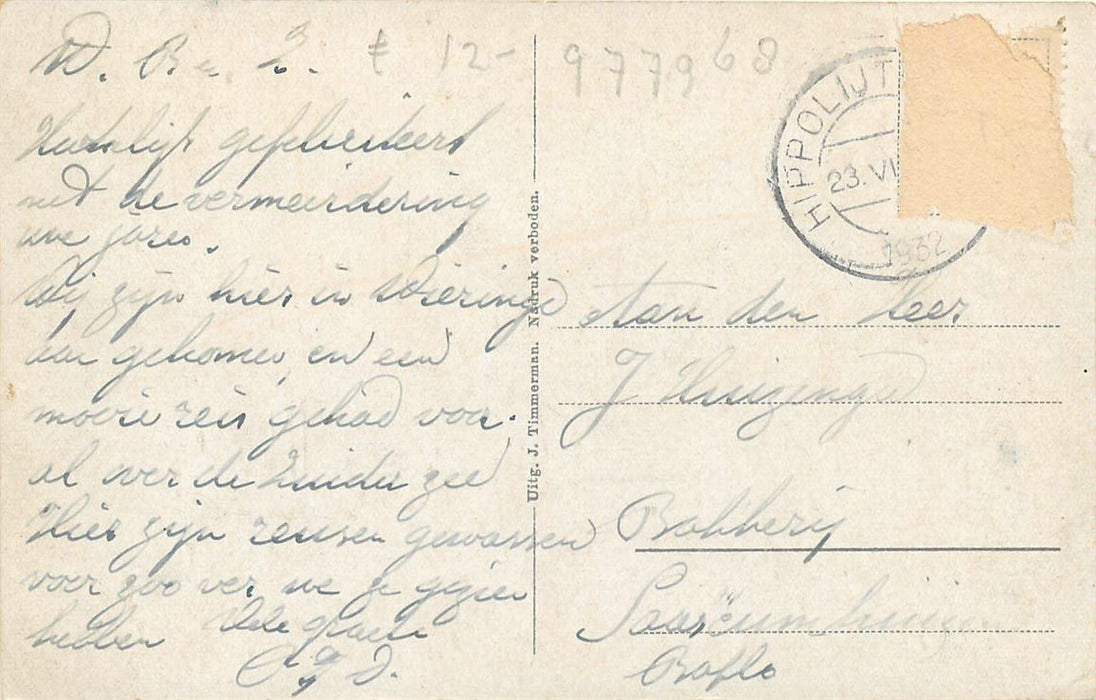 W. B. Z. t 12-
977968
Hartelijk gefeliciteerd
met de vermeerdering
uwe jaren.
Wij zijn hier in Wieringe
aan gekomen, en een
mooie reis gehad voor,
al over de Zuider zee
Hier zijn reuzen gewassen
voor zoo ver we ze gezien
hebben Vele groete
HIPPOLIJT
23.VI
1932
Uitg. J. Timmerman. Nadruk verboden.
Aan den Heer
J Huizenga
Bakkerij
Saaxumhuizen
Baflo